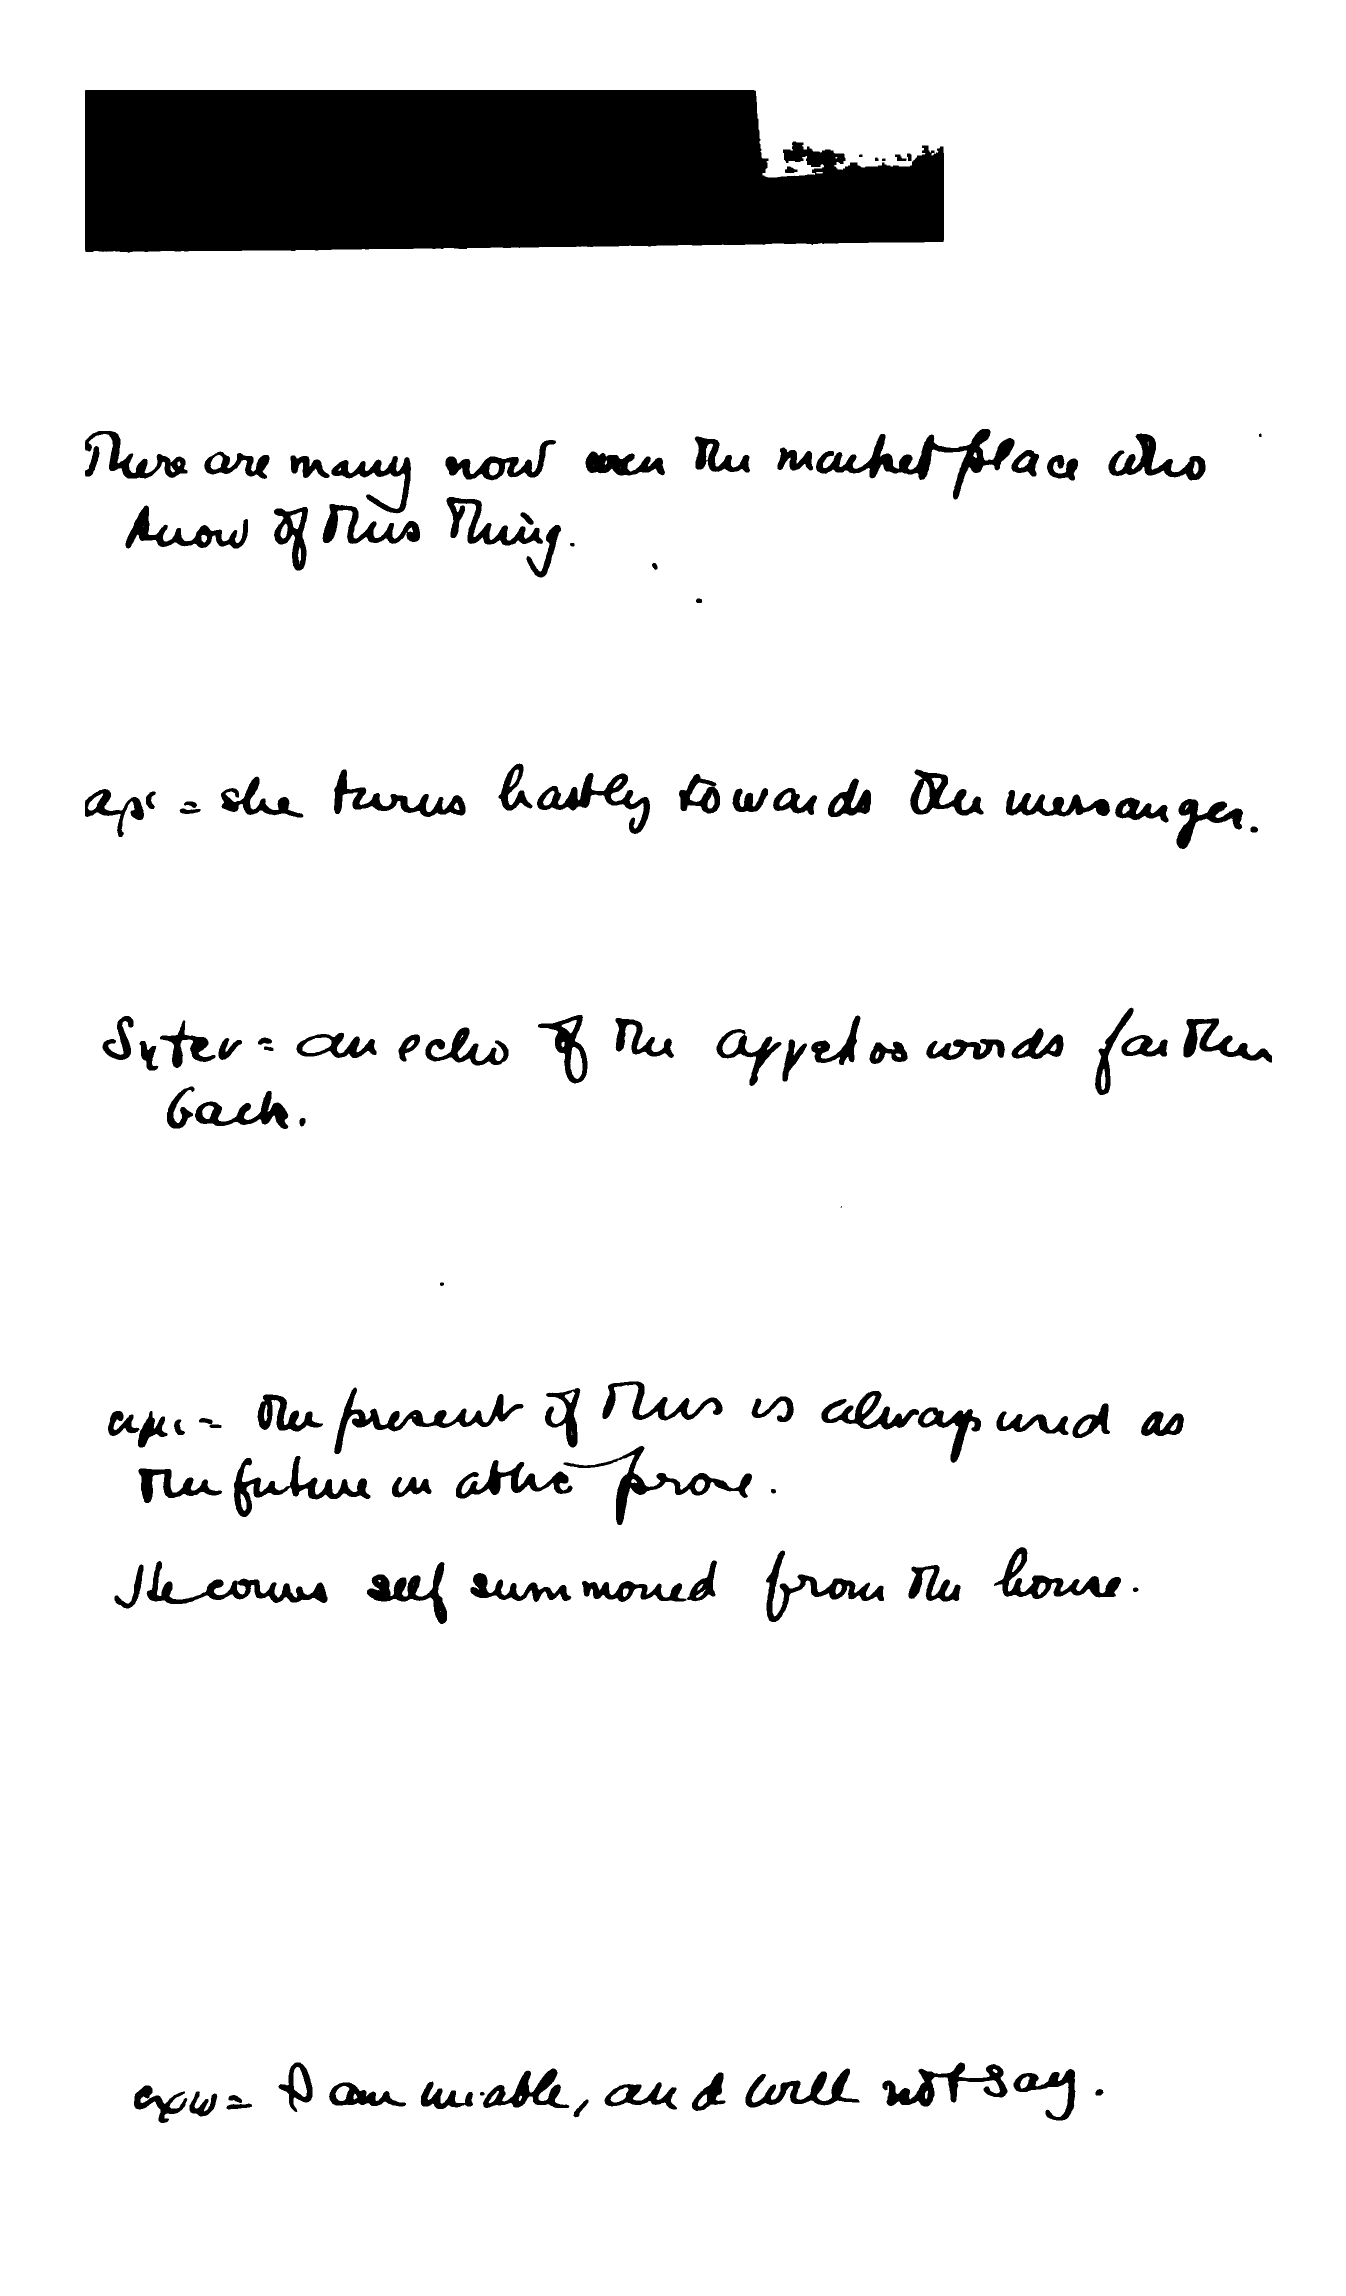 There are many now in the market place who
know of this thing.
αρ' = she turns hastly towards the messanger.
δητεν = an echo of the αγγελος words farther
back.
ειμι = the present of this is always used as
the future in attic prose.
He comes self summoned from the house.
εχω = I am unable, and will not say.